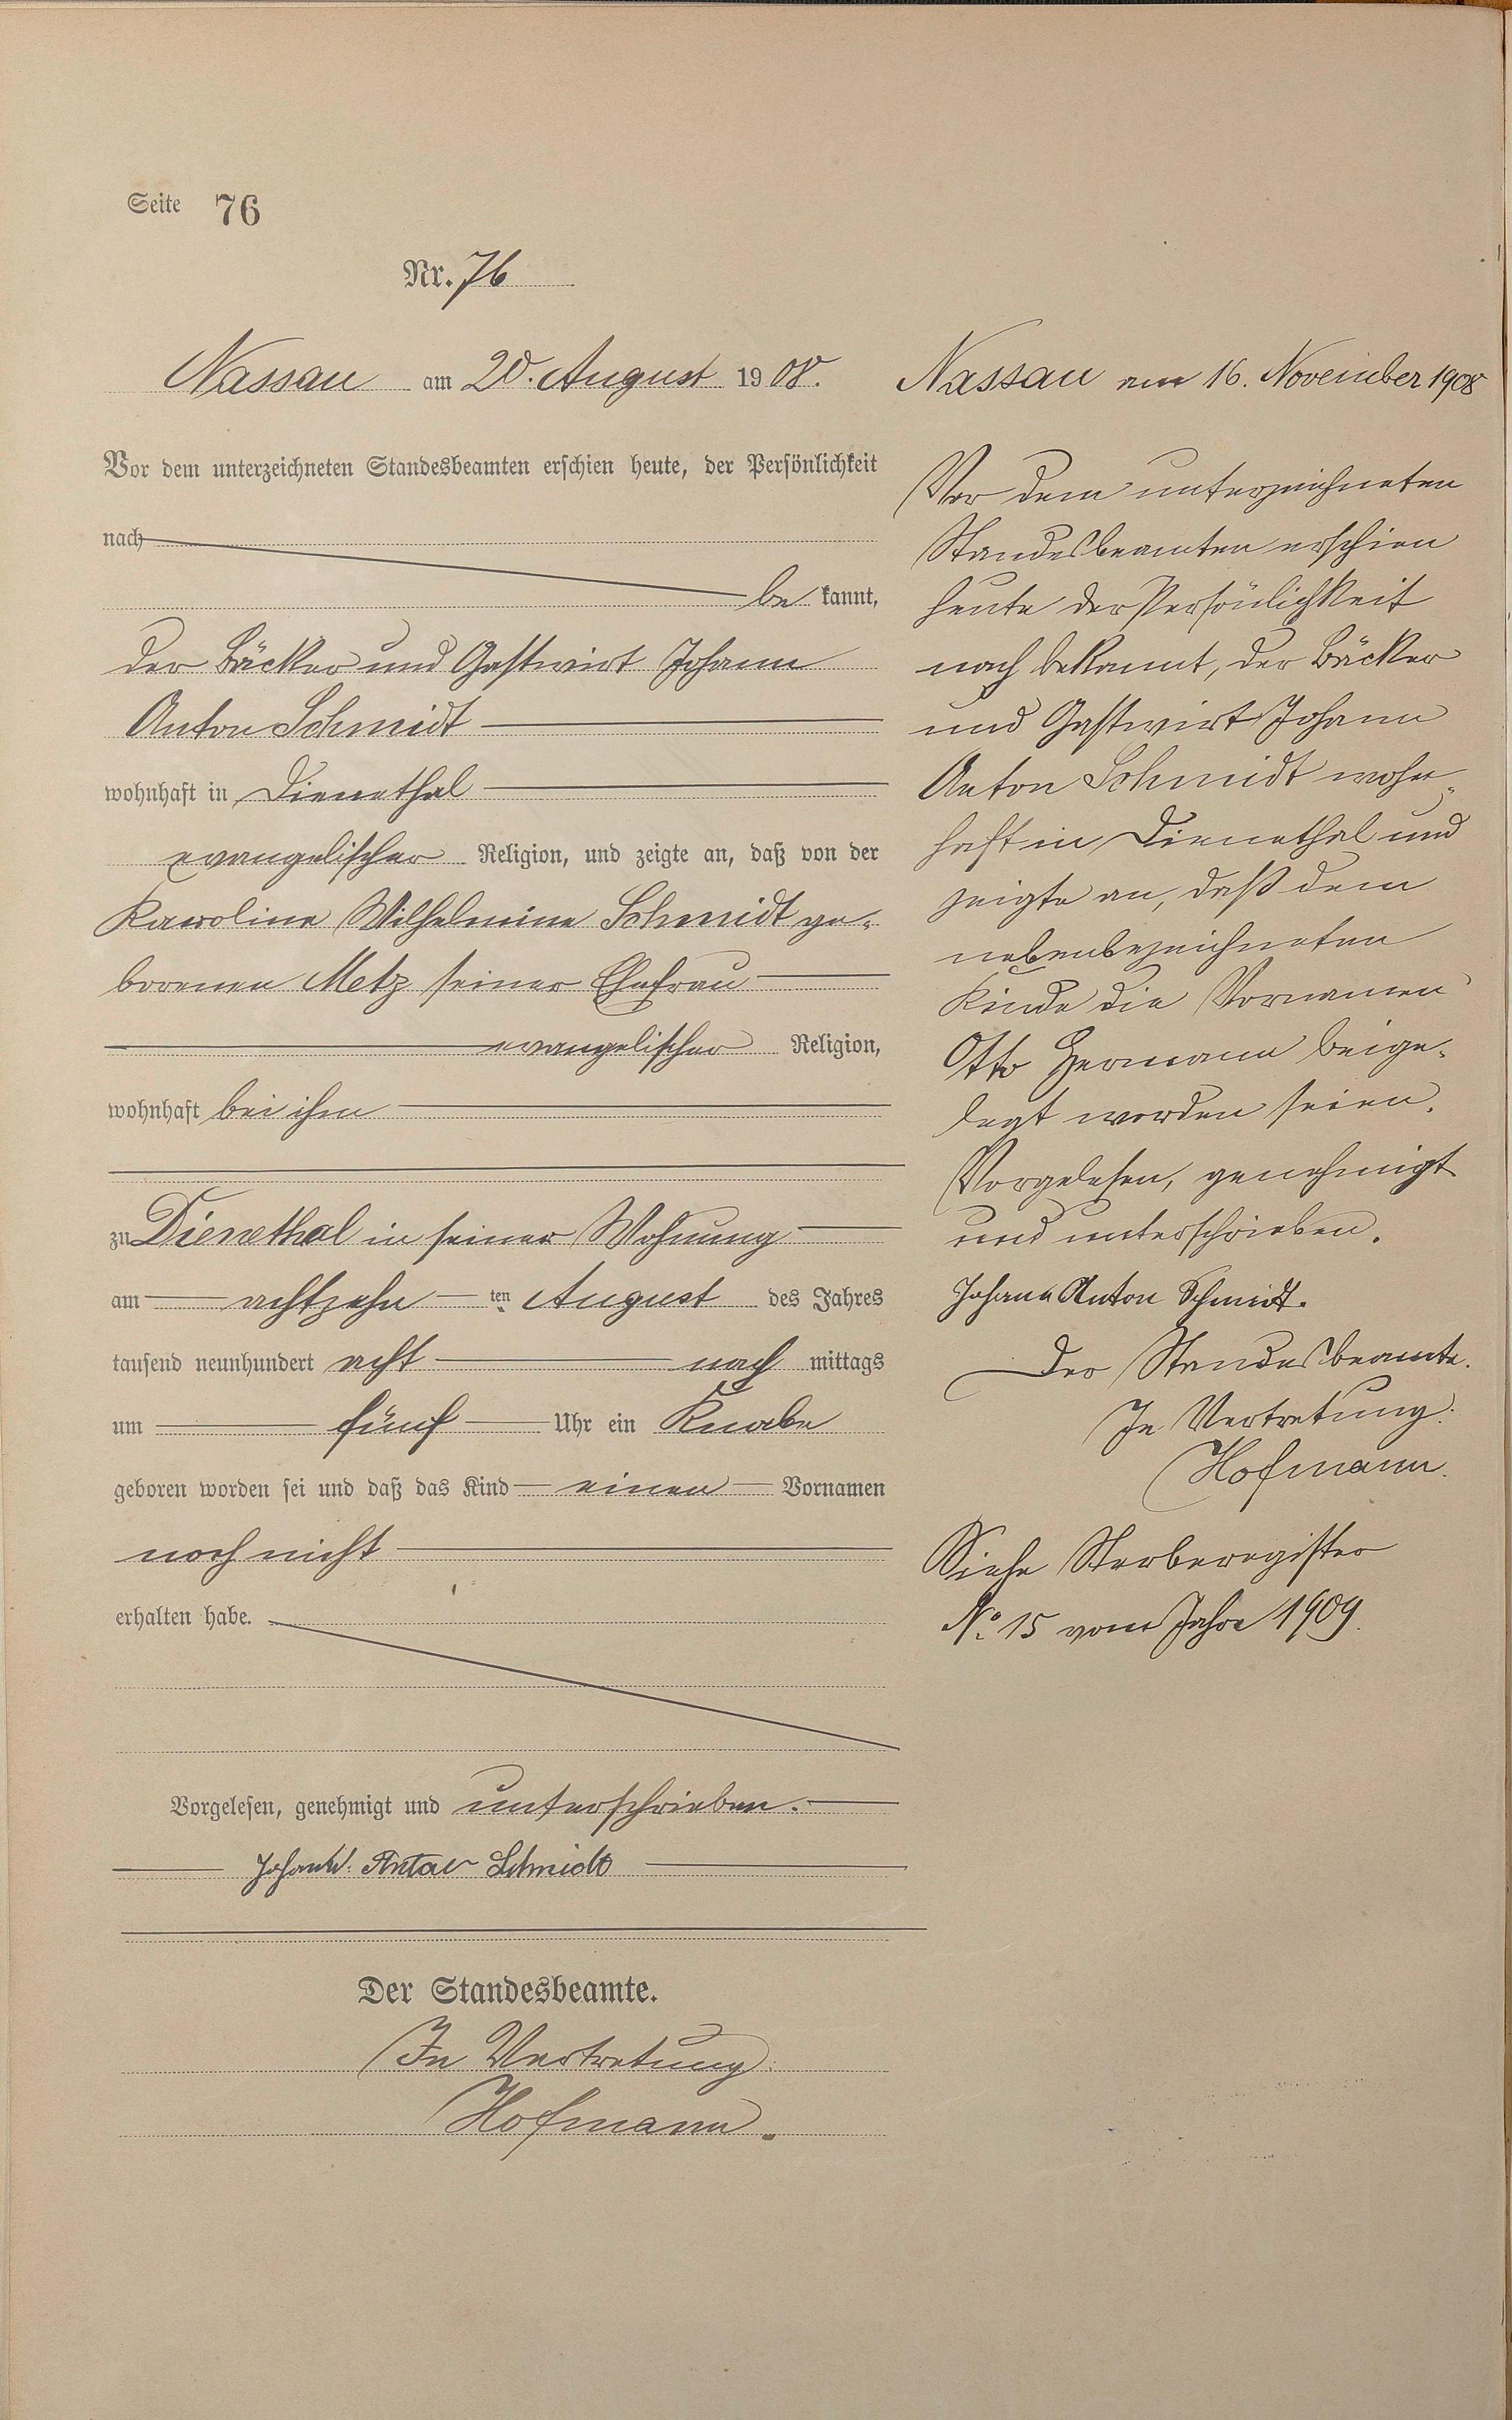 Seite 76
Nr. 76
Nassau am 20. August 1908.
Vor dem unterzeichneten Standesbeamten erschien heute, der Persönlichkeit
nach
bekannt,
der Bäcker und Gastwirt Johann
Anton Schmidt
wohnhaft in Dienethal
evangelischer Religion, und zeigte an, daß von der
Karoline Wilhelmine Schmidt ge-
borenen Metz seiner Ehefrau
evangelischer Religion,
wohnhaft bei ihm
zu Dienethal in seiner Wohnung
am achtzehn ten August des Jahres
tausend neunhundert acht nach mittags
um fünf Uhr ein Knabe
geboren worden sei und daß das Kind einen Vornamen
noch nicht
erhalten habe.
Vorgelesen, genehmigt und unterschrieben.
Johann Anton Schmidt
Der Standesbeamte.
In Vertretung:
Hofmann.
Nassau am 16. November 1908
Vor dem unterzeichneten
Standesbeamten erschien
heute der Persönlichkeit
nach bekannt, der Bäcker
und Gastwirt Johann
Anton Schmidt wohn-
haft in Dienethal und
zeigte an, daß dem
nebenbezeichneten
Kinde die Vornamen
Otto Hermann beige-
legt worden seien.
Vorgelesen, genehmigt
und unterschrieben.
Johann Anton Schmidt.
Der Standesbeamte.
In Vertretung:
Hofmann.
Siehe Sterberegister
No. 15 vom Jahre 1909.